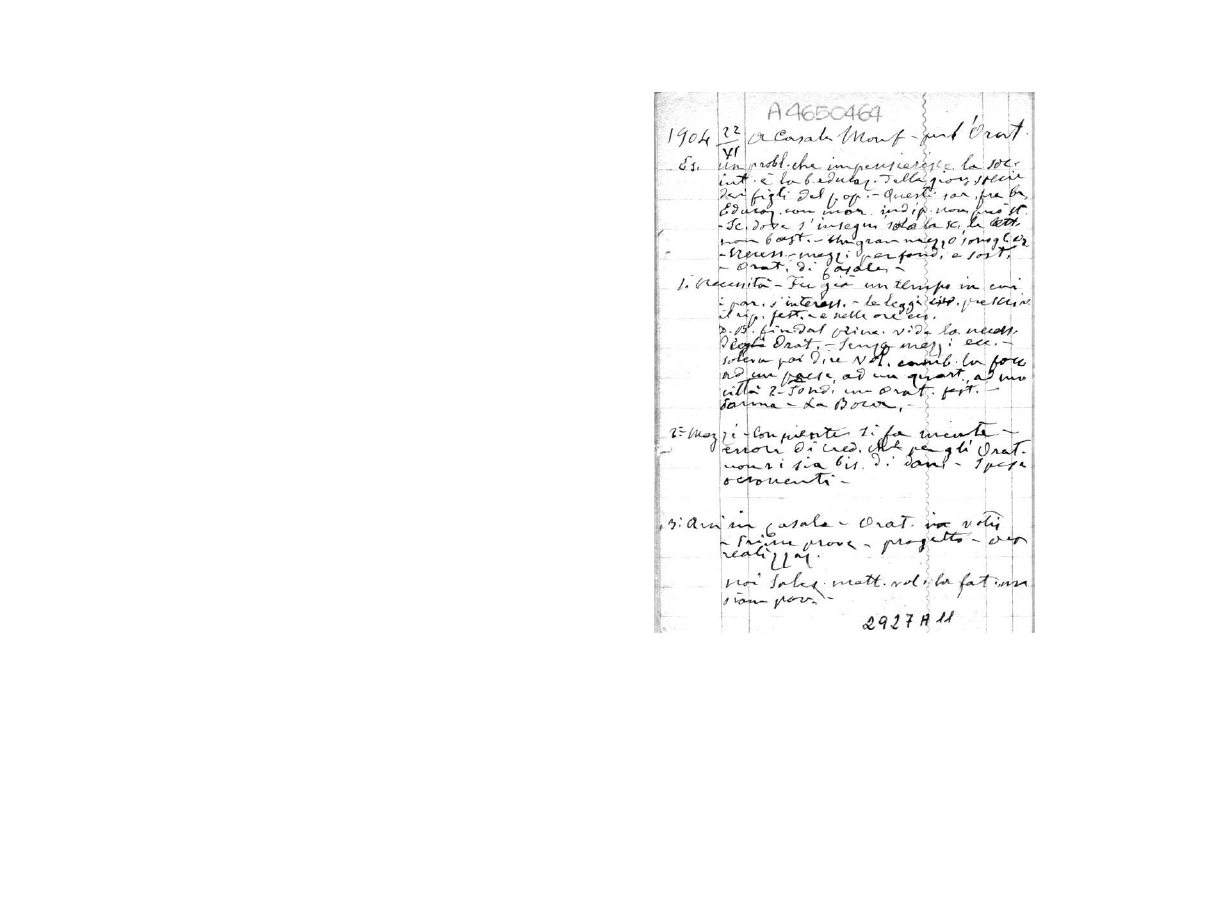 A4650464
1904 22/XI a Casale Monf - per l'Orat.
Es. un probl. che impensierisce la soc.
int. è la b. educaz. della giov. specie
dei figli del pop. - Questi sar. fra br.
Educaz. con mor. indip. non può st.
- Sc. dove s'insegni solo la sc. le lett.
non bast. - Un gran mezzo sono gli Or.
- Necess. - mezzi per fond. e sost.
- Orat. di Casale -
1. Necessità - Fu già un tempo in cui
i par. s'interess. - le leggi
il rip. fest. - e nelle ore
D. B. fin dal princ. vide la necess.
degli Orat. - Senza mezzi ecc. -
soleva poi dire Vol. camb. la faccia
ad un paese, ad un quart. ad una
città? - Fond. un Orat. fest. -
Parma - La Boca. -
2° Mezzi - Con niente si fa niente -
errore di cred. che per gli Orat.
non vi sia bis. di dan. - Spese
occorrenti -
3: Qui in Casale - Orat. in votis
- Prime prove - progetto - ora
realizzaz.
noi Sales. matt. vol. la fat. ma
siam pov. -
2927 A 11